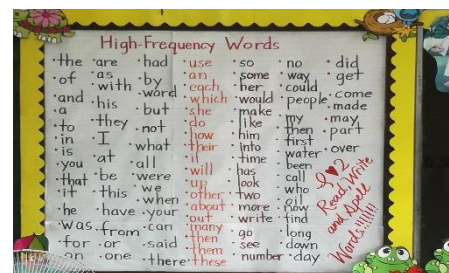 High-Frequency Words
the
of
and
a
to
in
is
you
that
it
he
was
for
on
are
as
with
his
they
I
at
be
this
have
from
or
one
had
by
word
but
not
what
all
were
we
when
your
can
said
there
use
an
each
which
she
do
how
their
if
will
up
other
about
out
many
then
them
these
so
some
her
would
make
like
him
into
time
has
look
two
more
write
go
see
number
no
way
could
people
my
then
first
water
been
call
who
oil
now
find
long
down
day
did
get
come
made
may
part
over
I ♥ 2
Read, Write
and Spell
Words!!!!!!!